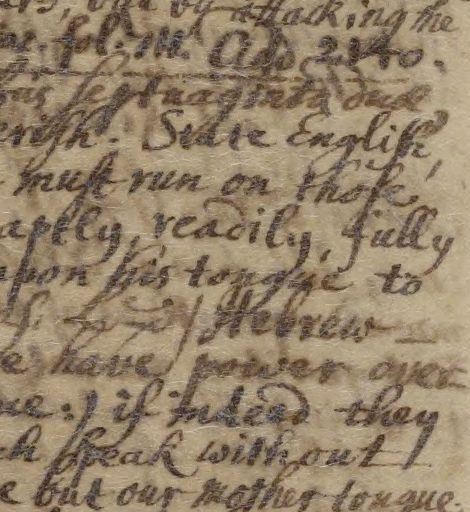 ers, but by attacking the
fol. M. Ado 2.
septuaginta duæ
erish. State English,
must run on those
aptly, readily, fully
upon his tongue to
Hebrew
e have power over
ue:) if indeed they
ch speak without
e but our mother tongue.